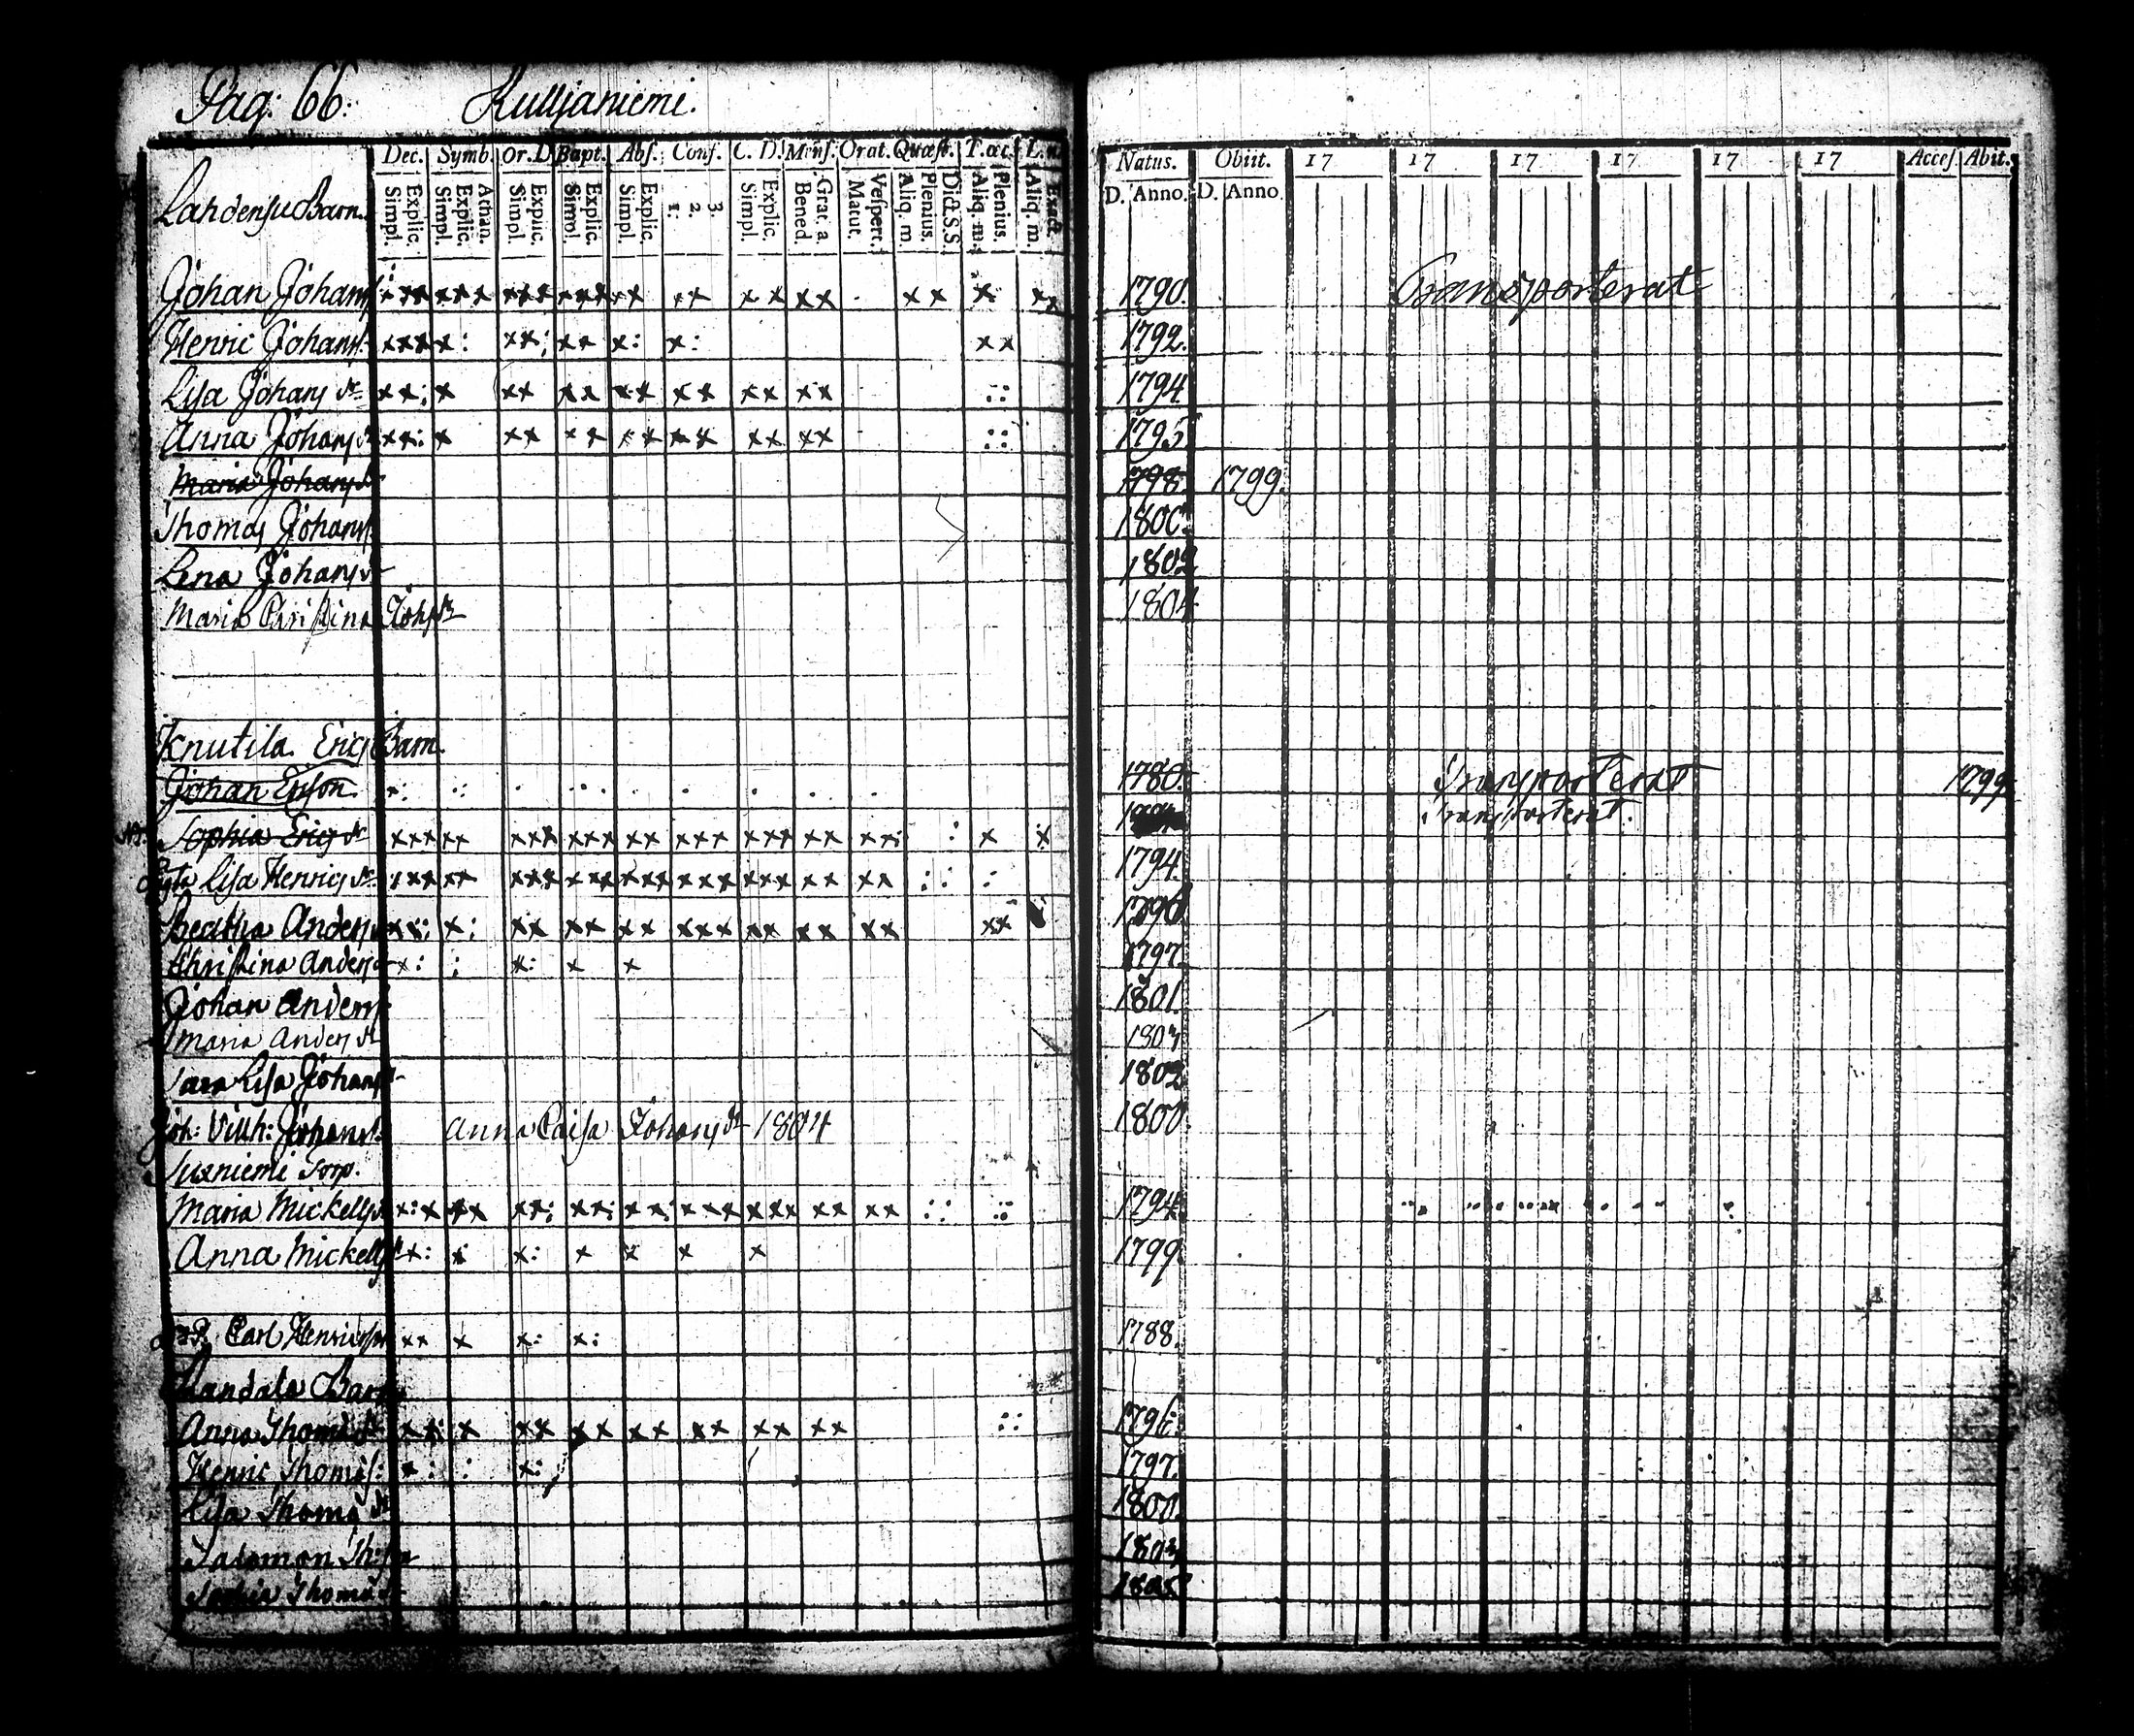 Pag: 66. Kulljaniemi.
Dec. Symb. Or. D. Bapt. Abs. Conf. C. D. Mens. Orat. Quæst. T. œc. L. n.
Explic. Simpl. Athan. Explic. Simpl. Explic. Simpl. Explic. Simpl. Explic. Simpl. 3. 2. 1. Explic. Simpl. Grat. a. Bened. Vespert. Matut. Dict. S.S. Plenius. Aliq. m. Plenius. Aliq. m. Exact. Aliq. m.
Natus. Obiit. 17 17 17 17 17 17 Acces. Abit.
D. Anno. D. Anno.
Lahdensuo Barn.
Johan Johans 1790. Transporterat
Henric Johans 1792.
Lisa Johans dr 1794
Anna Johans dr 1795
Maria Johans dr 1798 1799.
Thomas Johans 1800.
Lena Johans dr 1802
Maria Christina Johs dr 1804
Knutila Erics Barn
Johan Ersson 1780. Transporterat 1799.
Sophia Erics dr Transporterat.
Lisa Henrics dr 1794.
Beatha Anders 1796
Christina Anders 1797.
Johan Anders 1801.
Maria Anders dr 1803
Sara Lisa Johans 1802
Joh: Vilh: Johans 1800.
Anna Caisa Johans dr 1804
Susniemi Torp.
Maria Mickels dr 1794.
Anna Mickels dr 1799.
Carl Henricsson 1788.
Barn
Anna Thomæ dr 1796.
Henric Thomæs: 1797.
Lisa Thomæ dr 1800.
Salomon Th: 1803
Sophia Thomæ dr 1805